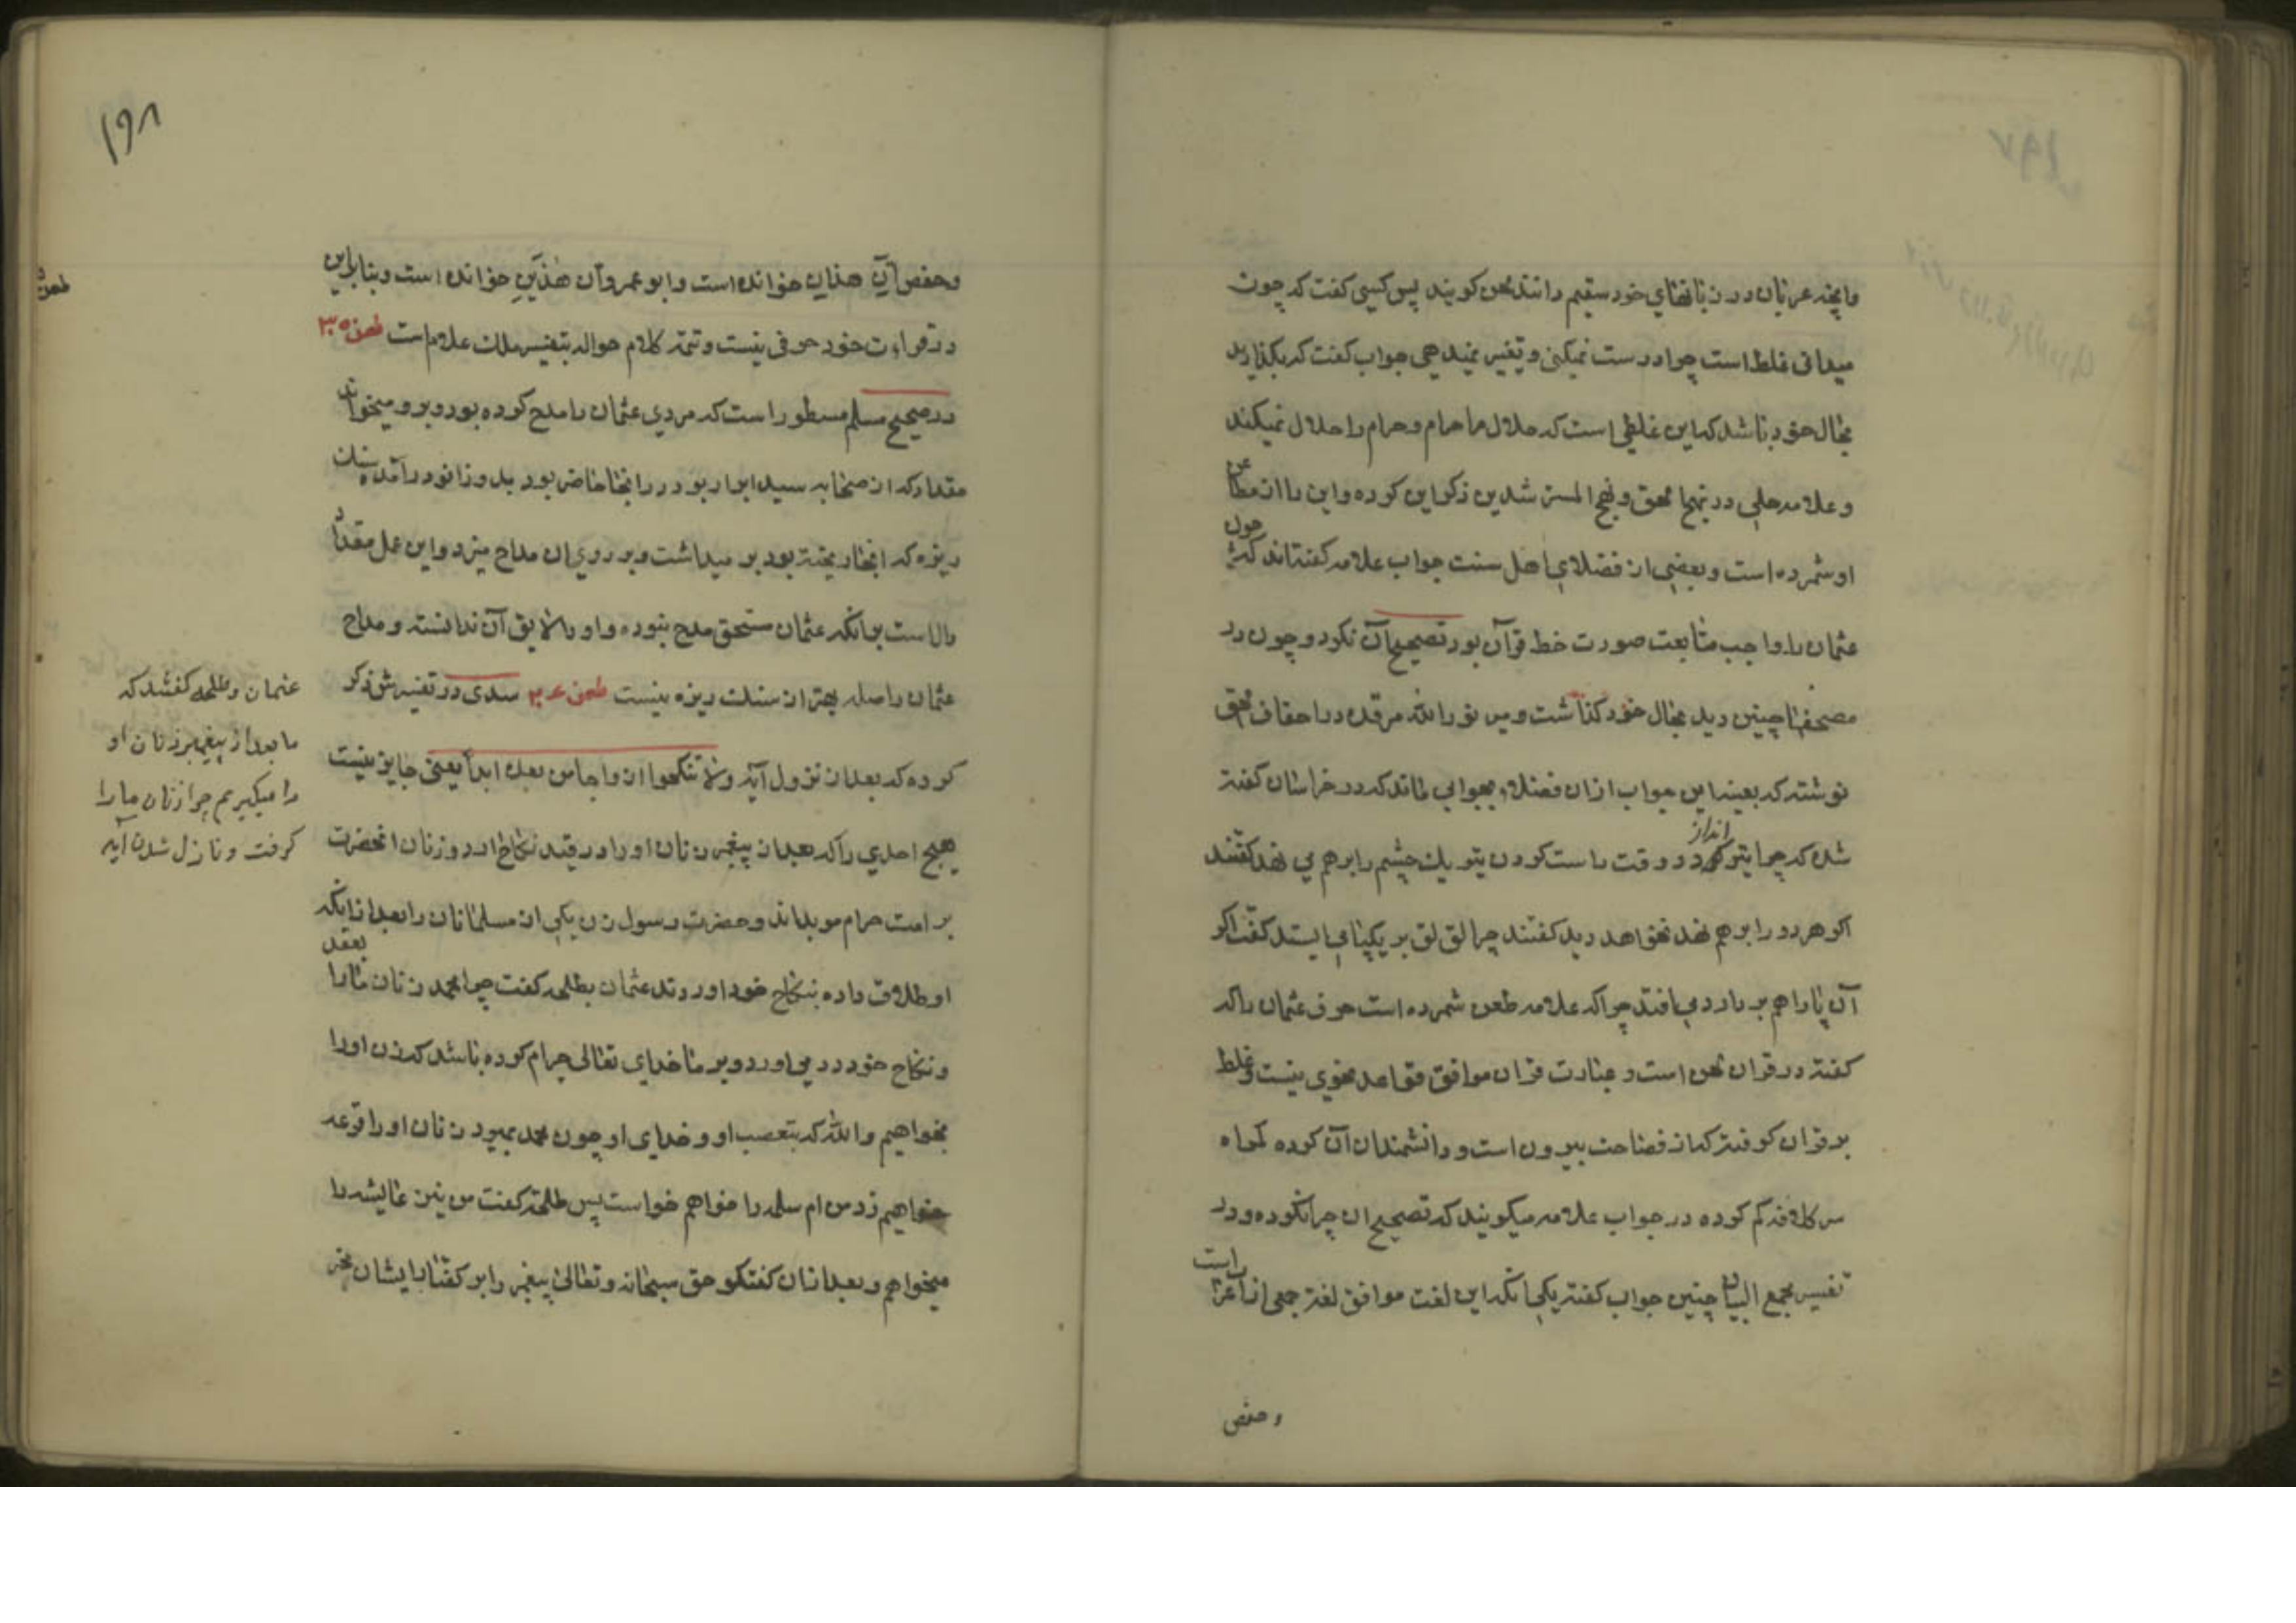 وانچه عربان در زبانهای خود سقیم دانند لحن کویند پس کسی کفت که چون
میدانی غلط است چرا درست نمیکنی و تغییر نمیدهی جواب کفت که بکذارید
بحال خود باشد که این غلطی است که حلال ما حرام و حرام را حلال نمیکند
و علامه حلی در نهج الحق و نهج المسترشدین ذکر این کرده و این را از مطاعن
او شمرده است و بعضی از فضلای اهل سنت جواب علامه کفته اند که چون
عثمان را واجب متابعت صورت خط قرآن بود تصحیح آن نکرد و چون در
مصحفها چنین دید بحال خود کذاشت و میر نور الله مرقده در احقاق الحق
نوشته که بعینه این جواب ازان فضلاء بجوابی ماند که در خراسان کفته
شد که چرا تیر انداز در وقت راست کردن تیر یک چشم را بر هم می نهد کفتند
اکر هر دو را بر هم نهد نخواهد دید کفتند چرا لق لق بر یکپا می ایستد کفت اکر
آن پا را هم بر دارد می افتد چرا که علامه طعن شمرده است حرف عثمان را که
کفته در قران لحن است و عبارت قران موافق قواعد نحوی نیست و غلط
بر قران کرفته که از فصاحت بیرون است و دانشمندان آن کوده کمراه
سر کلافه کم کرده در جواب علامه میکویند که تصحیح ان چرا نکرده و در
تفسیر مجمع البیان چنین جواب کفته یکی انکه این لغت موافق لغة جمعی از اعراب است
و حفص
۱۹۸
و حفص آن هذان خوانده است و ابو عمرو آن هذین خوانده است و بنا براین
در قراءت خود حرفی نیست و تتمه کلام حواله بتفسیر ملک علام است طعن ۳۵
در صحیح مسلم مسطور است که مردی عثمان را مدح کرده بود و برو میخواند
مقداد که از صحابه سید ابرار بود در انجا حاضر بود بدو زانو در آمد سنک
ریزه که انجا ریخته بود بر میداشت و بر روی ان مداح میزد و این عمل مقداد
دال است برانکه عثمان مستحق مدح نبوده و او را لایق آن ندانسته و مداح
عثمان را صله بهتر از سنک ریزه نیست طعن ۳۶ سدی در تفسیرش ذکر
کرده که بعد از نزول آیه ولا تنکحوا ازواجه من بعده ابداً یعنی جایز نیست
هیچ احدی را که بعد از پیغمبر زنان او را در قید نکاح ارد و زنان انحضرت
بر امت حرام موبد اند و حضرت رسول زن یکی از مسلمانان را بعد از انکه
او طلاق داده بنکاح خود اورد بعقد عثمان بطلحه کفت چرا محمد زنان ما را
و نکاح خود در می اورد و بر ما خدای تعالی حرام کرده باشد که زن او را
بخواهیم والله که بتعصب او و خدای او چون محمد بمیرد زنان او را قرعه
خواهیم زد من ام سلمه را خواهم خواست پس طلحه کفت من نیز عایشه را
میخواهم و بعد از ان کفتکو حق سبحانه و تعالی پیغمبر را بر کفتار ایشان خبر
طعن
عثمان و طلحه کفتند که
ما بعد از پیغمبر زنان او
را میکیریم چرا زنان ما را
کرفت و نازل شدن آیه